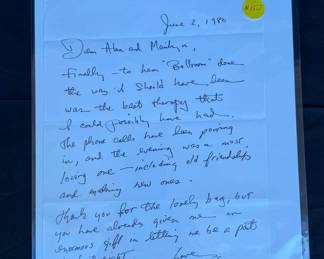 June 2, 1980
Dear Alan and Marilyn,
Finally — to hear "Ballroom" done
the way it should have been
was the best therapy that
I could possibly have had.
The phone calls have been pouring
in, and the evening was a most
loving one — including old friendships
and making new ones.
Thank you for the lovely bag, but
you have already given me an
enormous gift in letting me be a part
Love